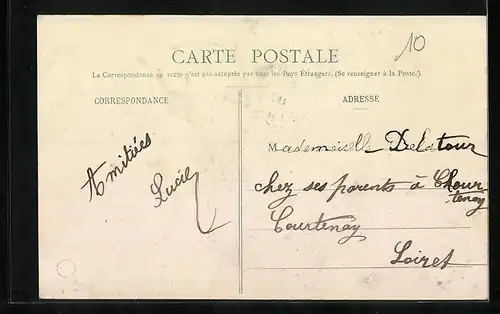 10
CARTE POSTALE
La Correspondance au recto n'est pas acceptée par tous les Pays Etrangers. (Se renseigner à la Poste.)
CORRESPONDANCE
ADRESSE
Amitiées
Lucie
Mademoiselle Delatour
chez ses parents à Chour-
tenay
Courtenay
Loiret